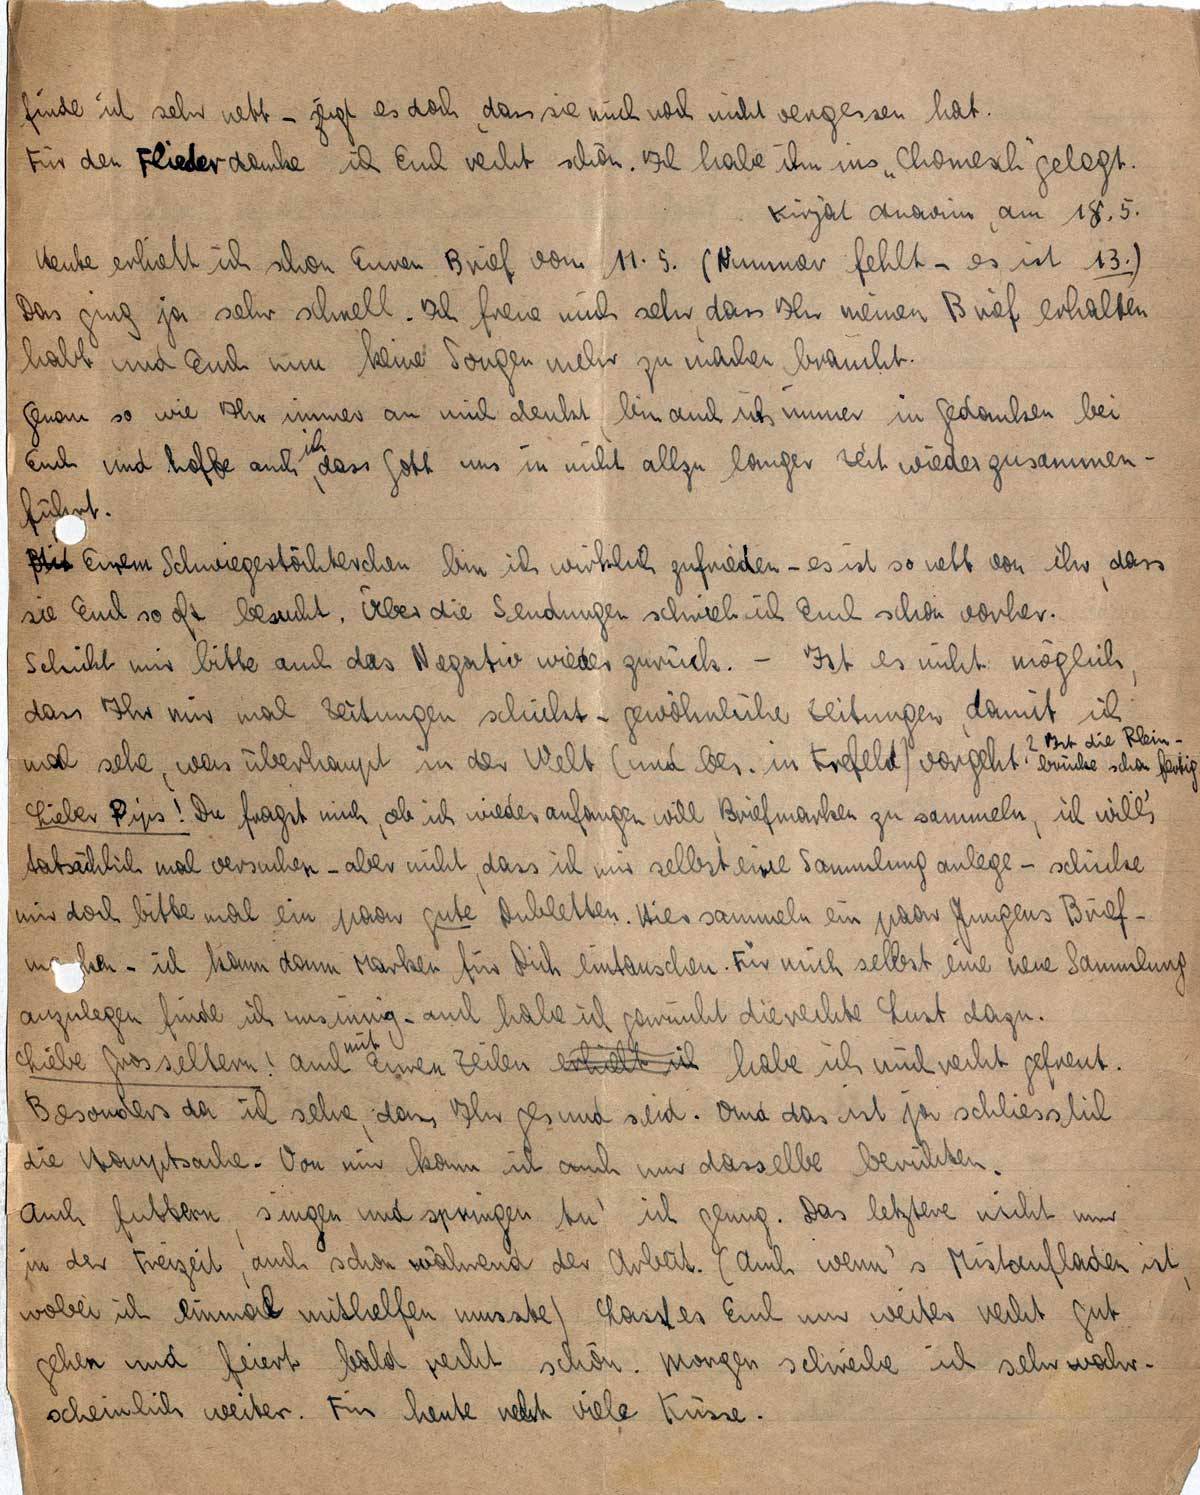 finde ich sehr nett - zeigt es doch, dass sie mich noch nicht vergessen hat.
Für den Flieder danke ich Euch recht schön. Ich habe ihn ins „Chomesch" gelegt.
Kirjat Anavim, am 18.5.
Heute erhielt ich schon Euren Brief vom 11.5. (Nummer fehlt - es ist 13.)
Das ging ja sehr schnell. Ich freue mich sehr, dass Ihr meinen Brief erhalten
habt und Euch nun keine Sorgen mehr zu machen braucht.
Genau so wie Ihr immer an mich denkt, bin auch ich immer in Gedanken bei
Euch und hoffe auch ich, dass Gott uns in nicht allzu langer Zeit wieder zusammen-
führt.
Mit Eurem Schwiegertöchterchen bin ich wirklich zufrieden - es ist so nett von ihr, dass
sie Euch so oft besucht. Über die Sendungen schrieb ich Euch schon vorher.
Schickt mir bitte auch das Negativ wieder zurück. - Ist es nicht möglich,
dass Ihr mir mal Zeitungen schickt - gewöhnliche Zeitungen, damit ich
mal sehe, was überhaupt in der Welt (und bes. in Krefeld) vorgeht? Ist die Rhein-
brücke schon fertig
Lieber Pips! Du fragst mich, ob ich wieder anfangen will, Briefmarken zu sammeln, ich will's
tatsächlich mal versuchen - aber nicht, dass ich mir selbst eine Sammlung anlege - schicke
mir doch bitte mal ein paar gute Dubletten. Hier sammeln ein paar Jungens Brief-
marken - ich kann dann Marken für Dich eintauschen. Für mich selbst eine neue Sammlung
anzulegen finde ich unsinnig - auch habe ich garnicht die rechte Lust dazu.
Liebe Grosseltern! Auch mit Euren Zeilen erhielt ich habe ich mich recht gefreut.
Besonders da ich sehe, dass Ihr gesund seid. Und das ist ja schliesslich
die Hauptsache. Von mir kann ich auch nur dasselbe berichten.
Auch futtern, singen und springen tu' ich genug. Das letztere nicht nur
in der Freizeit, auch schon während der Arbeit. (Auch wenn's Mistaufladen ist,
wobei ich einmal mithelfen musste) Lasst es Euch nur weiter recht gut
gehen und feiert bald recht schön. Morgen schreibe ich sehr wahr-
scheinlich weiter. Für heute recht viele Küsse.